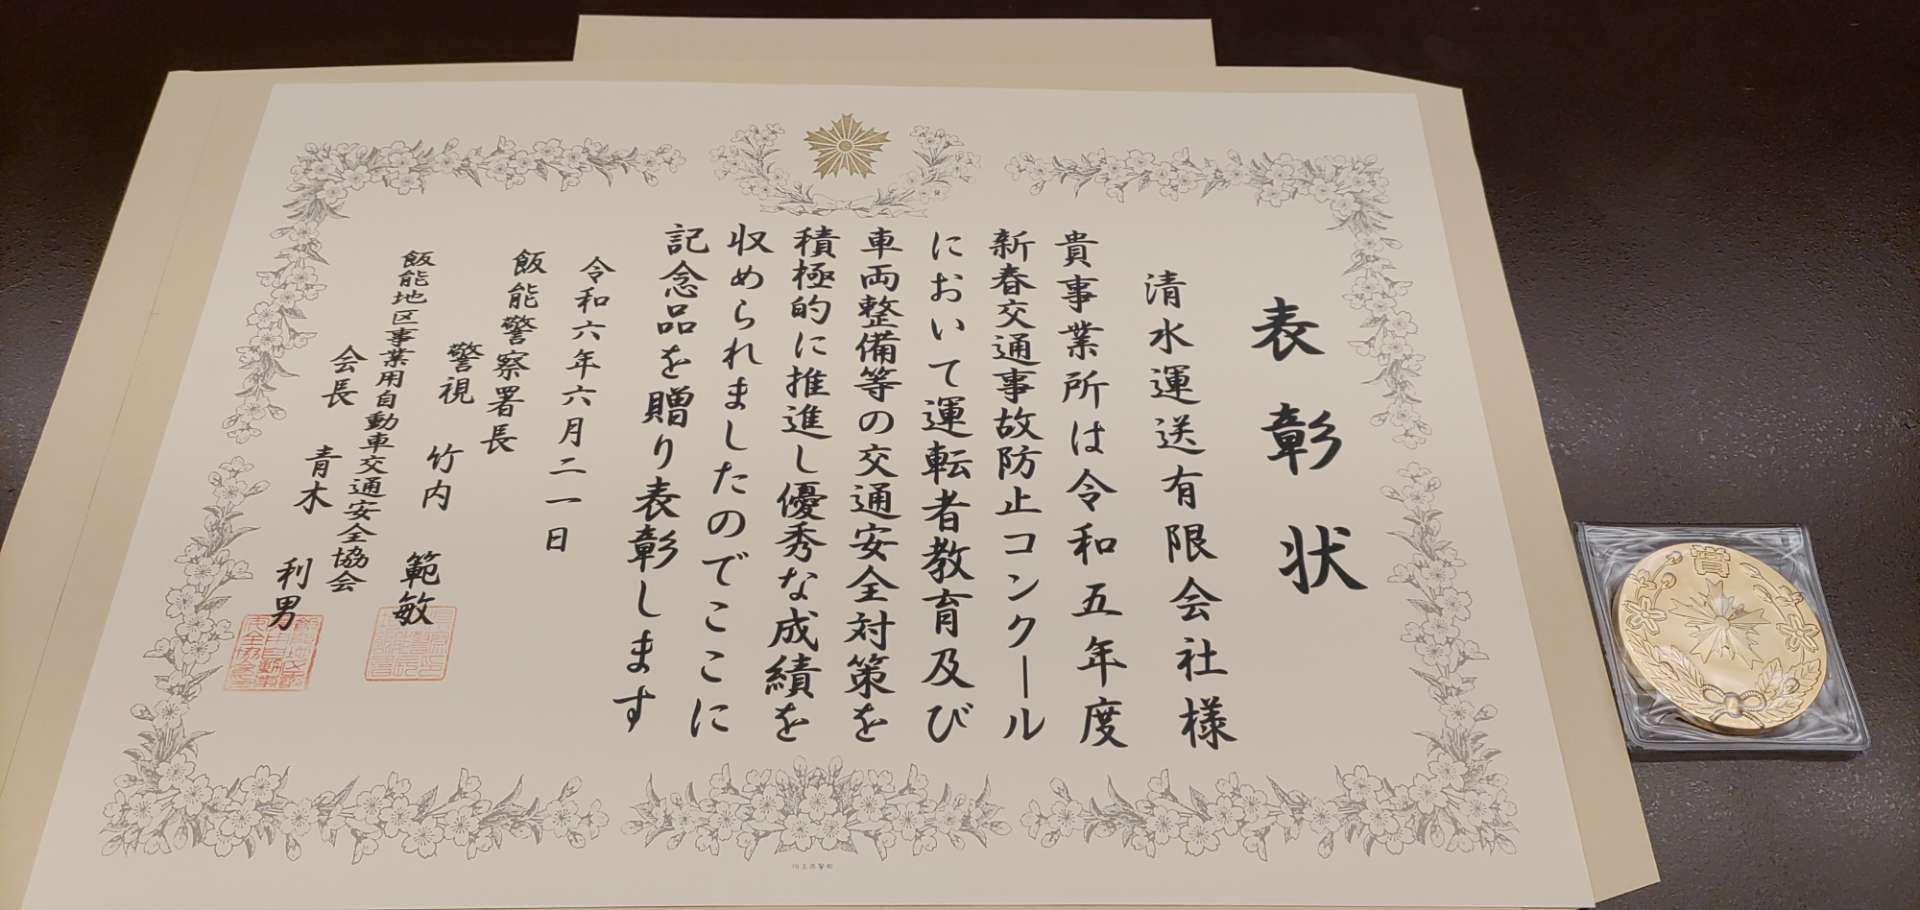 表彰状
清水運送有限会社様
貴事業所は令和五年度
新春交通事故防止コンクール
において運転者教育及び
車両整備等の交通安全対策を
積極的に推進し優秀な成績を
収められましたのでここに
記念品を贈り表彰します
令和六年六月二一日
飯能警察署長
警視 竹内 範敏
飯能地区事業用自動車交通安全協会
会長 青木 利男
賞